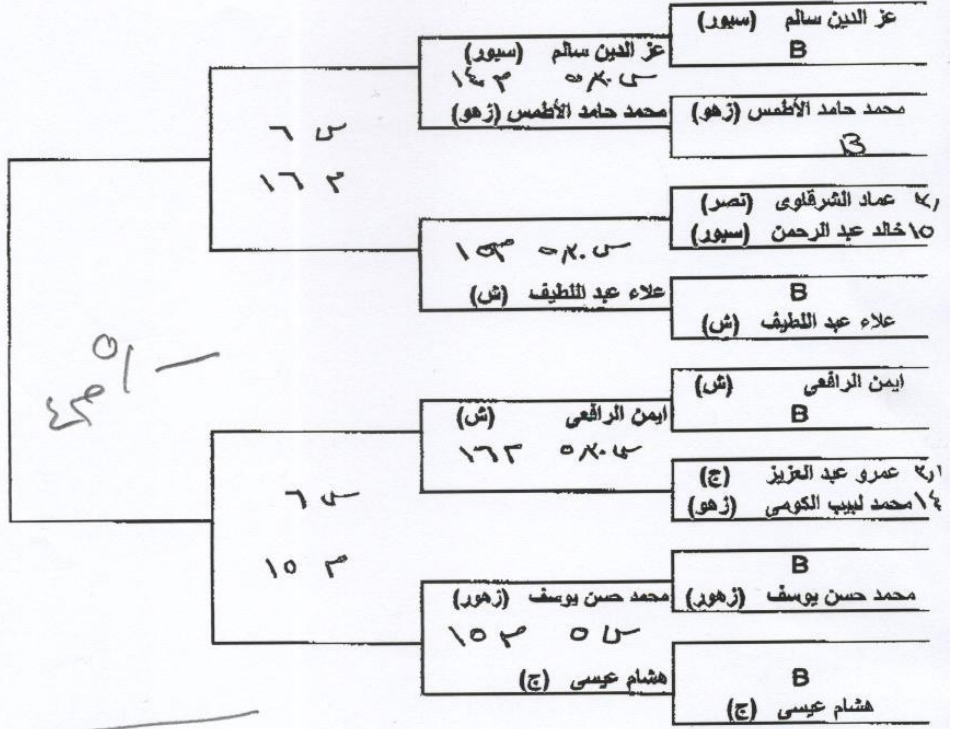 عز الدين سالم (سبور)
B
محمد حامد الأطمس (زهو)
B
عماد الشرقاوى (نصر)
١٥ خالد عبد الرحمن (سبور)
B
علاء عبد اللطيف (ش)
ايمن الرافعى (ش)
B
عمرو عبد العزيز (ج)
١٤ محمد لبيب الكومى (زهو)
B
محمد حسن يوسف (زهور)
B
هشام عيسى (ج)
عز الدين سالم (سبور)
س ٥٫٣٠ م ١٤
محمد حامد الأطمس (زهو)
س ٥٫٣٠ م ١٥
علاء عبد اللطيف (ش)
ايمن الرافعى (ش)
س ٥٫٣٠ م ١٦
محمد حسن يوسف (زهور)
س ٥ م ١٥
هشام عيسى (ج)
س ٦
م ١٦
س ٦
م ١٥